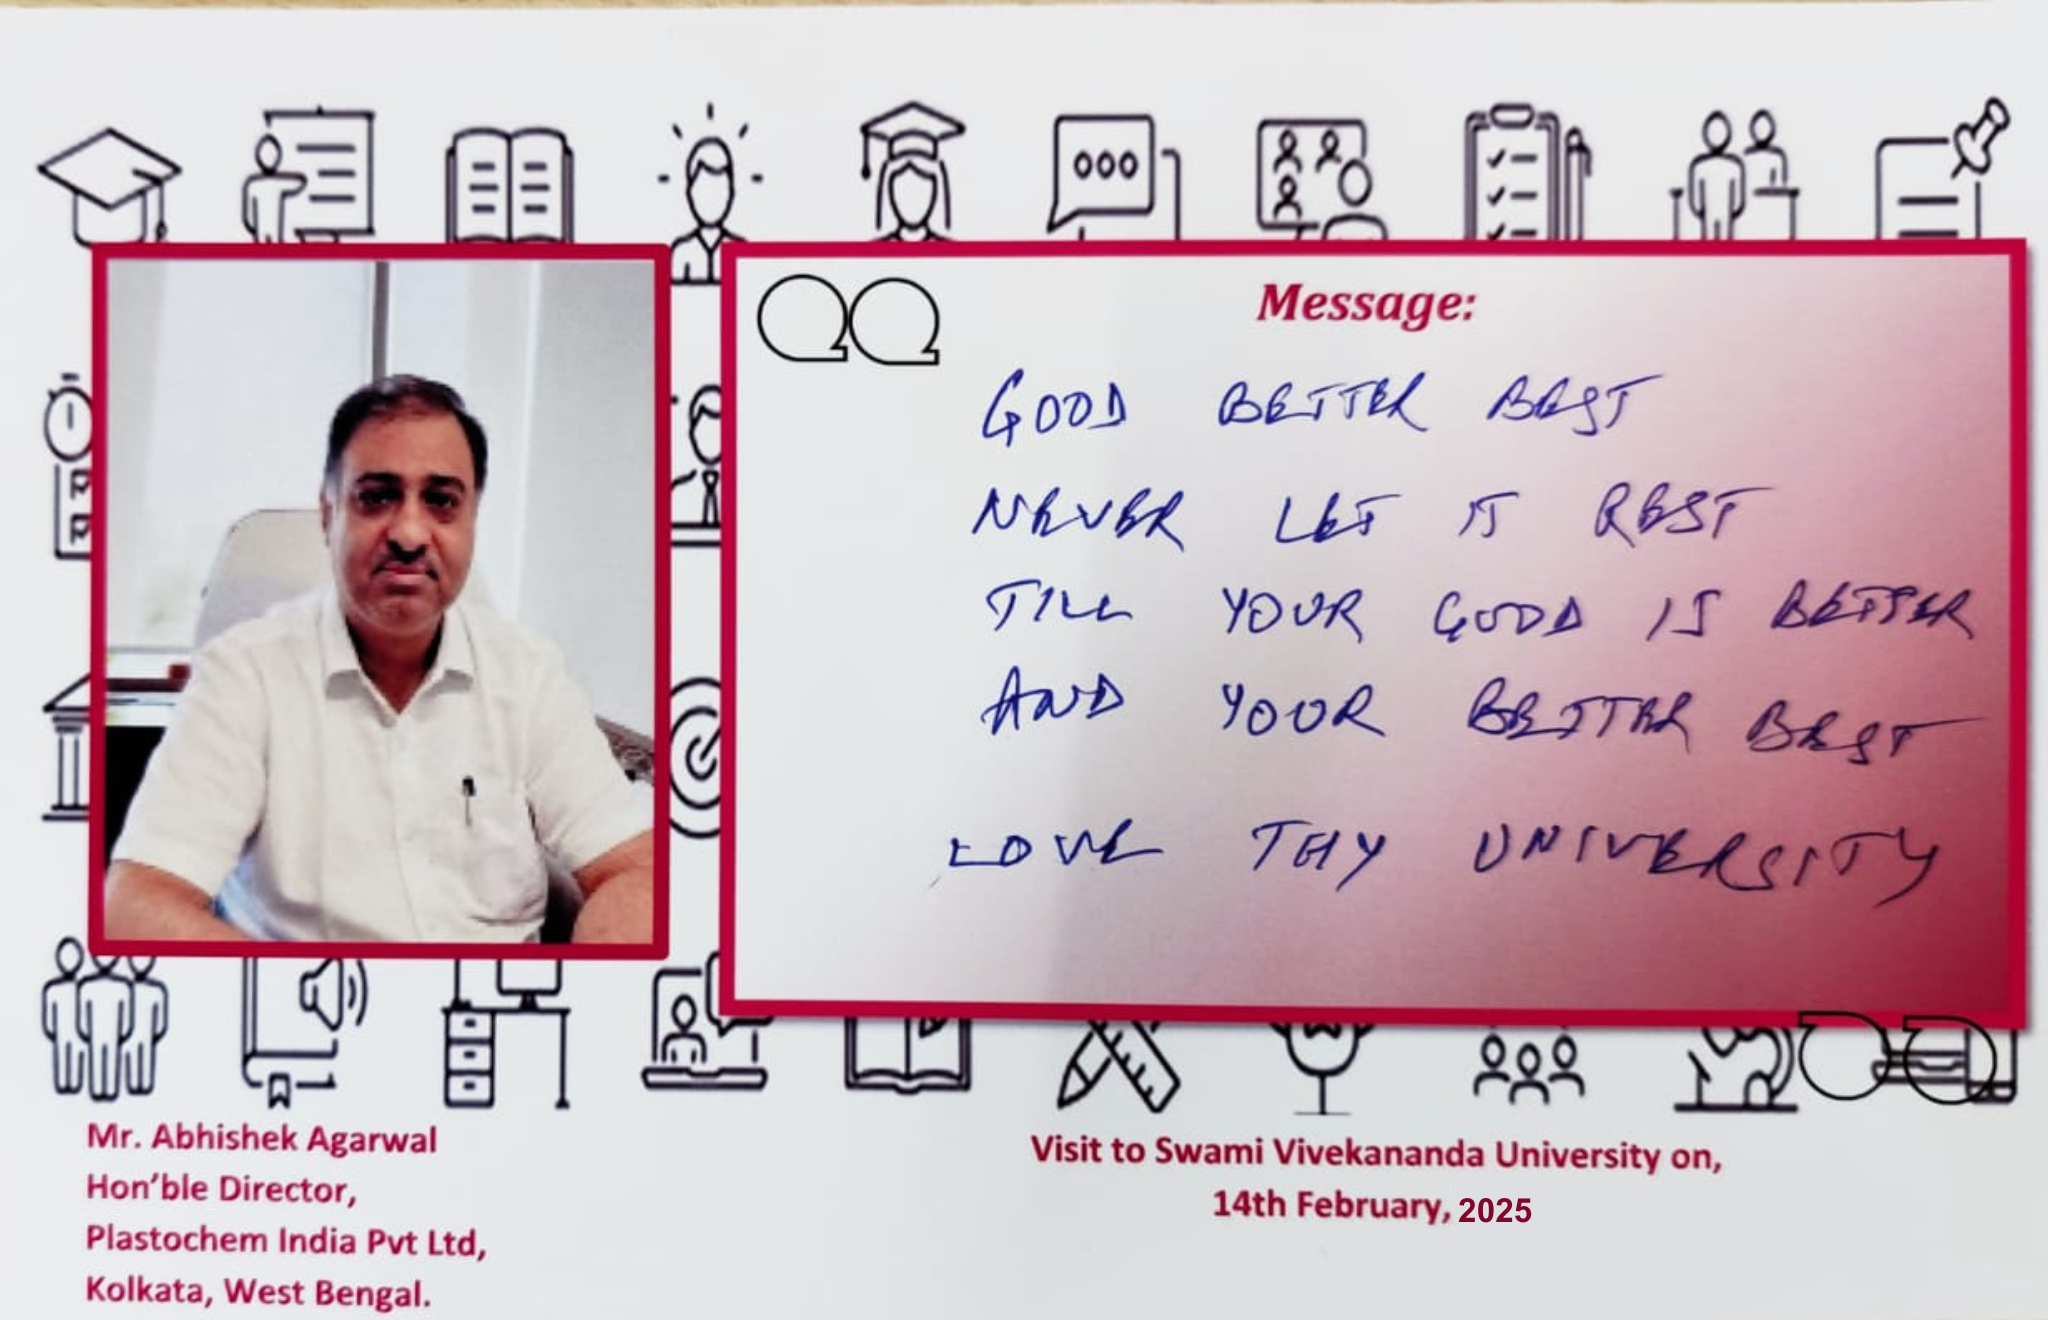 Message:
GOOD BETTER BEST
NEVER LET IT REST
TILL YOUR GOOD IS BETTER
AND YOUR BETTER BEST
LOVE THY UNIVERSITY
Mr. Abhishek Agarwal
Hon'ble Director,
Plastochem India Pvt Ltd,
Kolkata, West Bengal.
Visit to Swami Vivekananda University on,
14th February, 2025